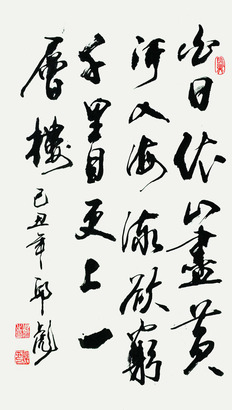 白日依山盡黃
河入海流欲窮
千里目更上一
層樓
己丑年邱彪